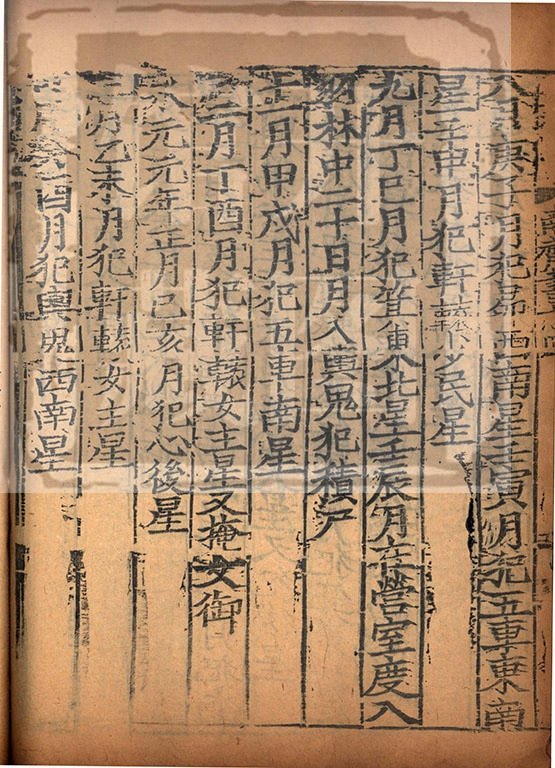 月犯昴西南星壬寅月犯五車東南
星壬申月犯軒轅少民星
九月丁巳月犯箕北星壬辰月在營室度入
羽林中二十日月入輿鬼犯積尸
十一月甲戌月犯五車南星
十二月丁酉月犯軒轅女主星又掩女御
永元元年正月己亥月犯心後星
三月乙未月犯軒轅女主星
四月犯輿鬼西南星